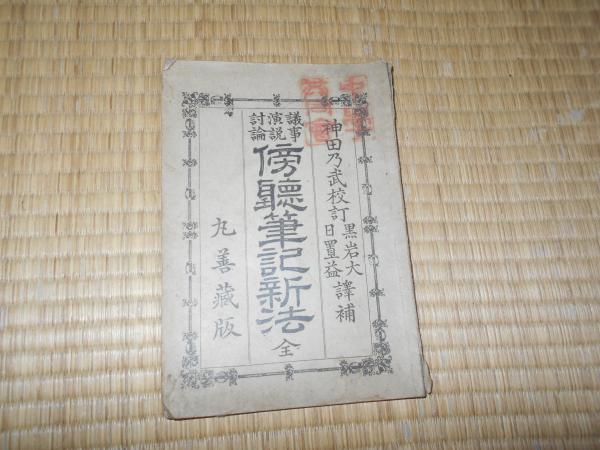 神田乃武校訂
黒岩大
日置益
譯補
議事
演説
討論
傍聽筆記新法
全
丸善藏版